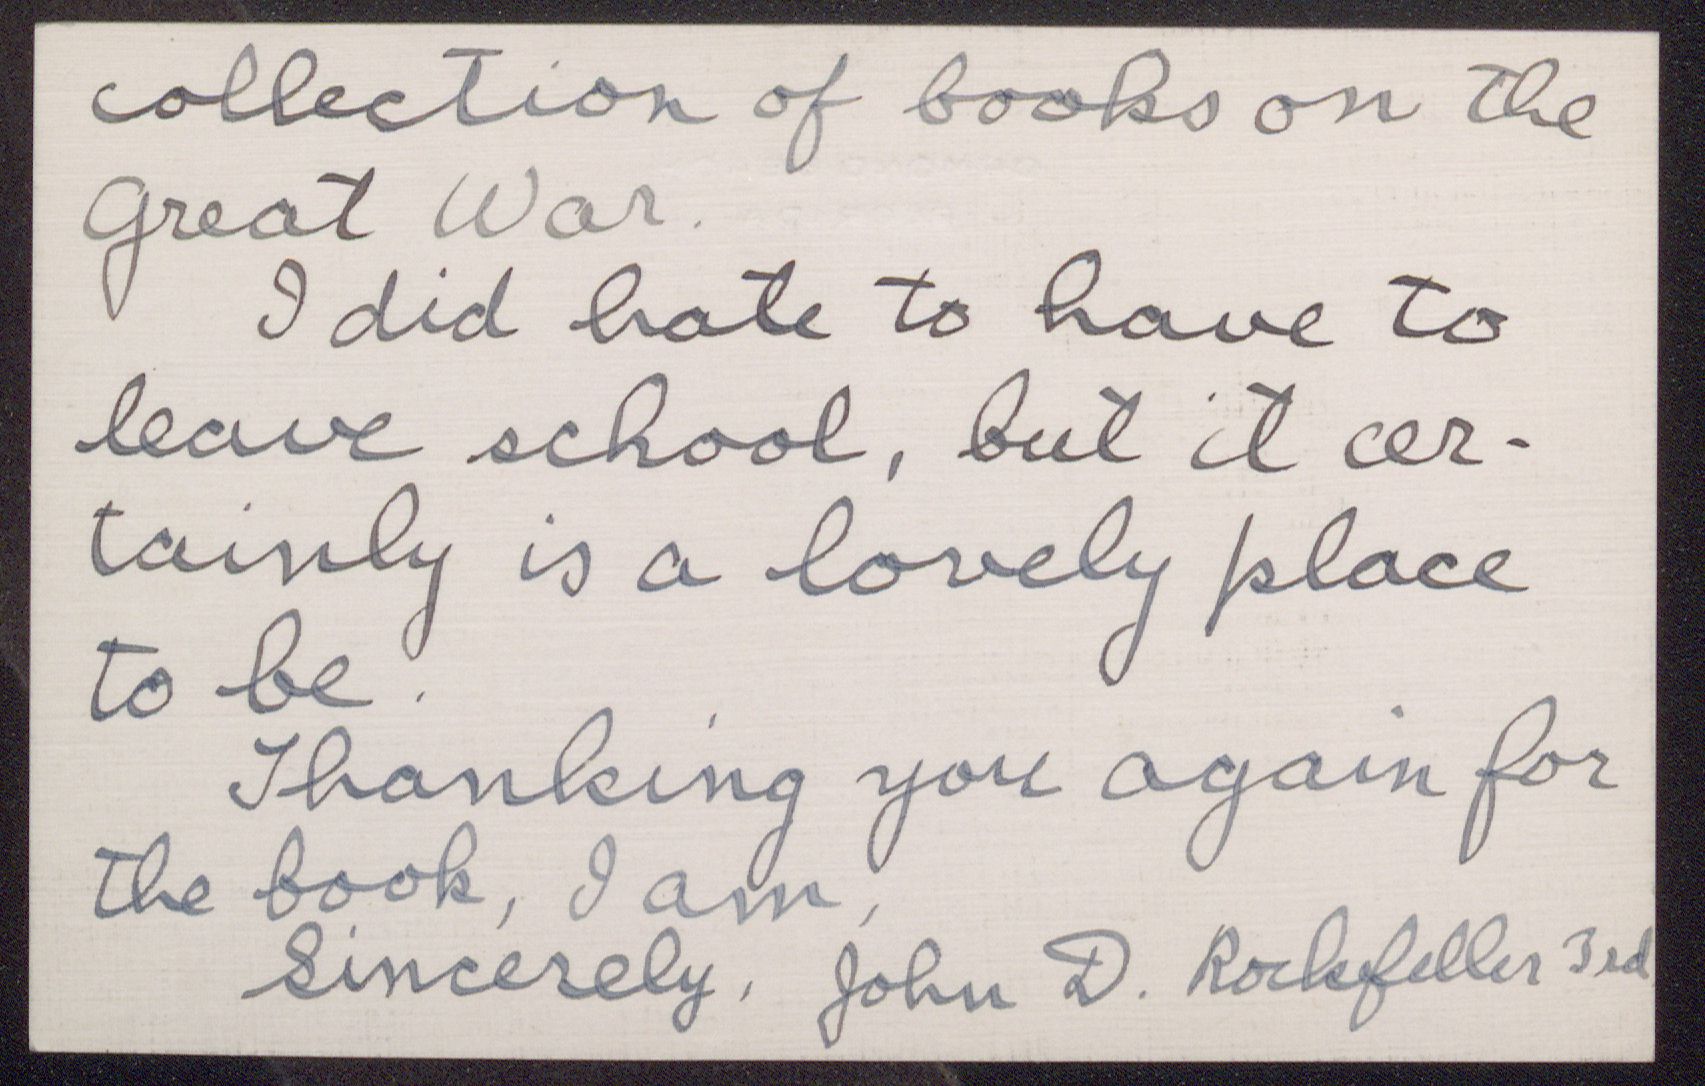 collection of books on the
Great War.
I did hate to have to
leave school, but it cer-
tainly is a lovely place
to be.
Thanking you again for
the book, I am,
Sincerely, John D. Rockefeller 3rd